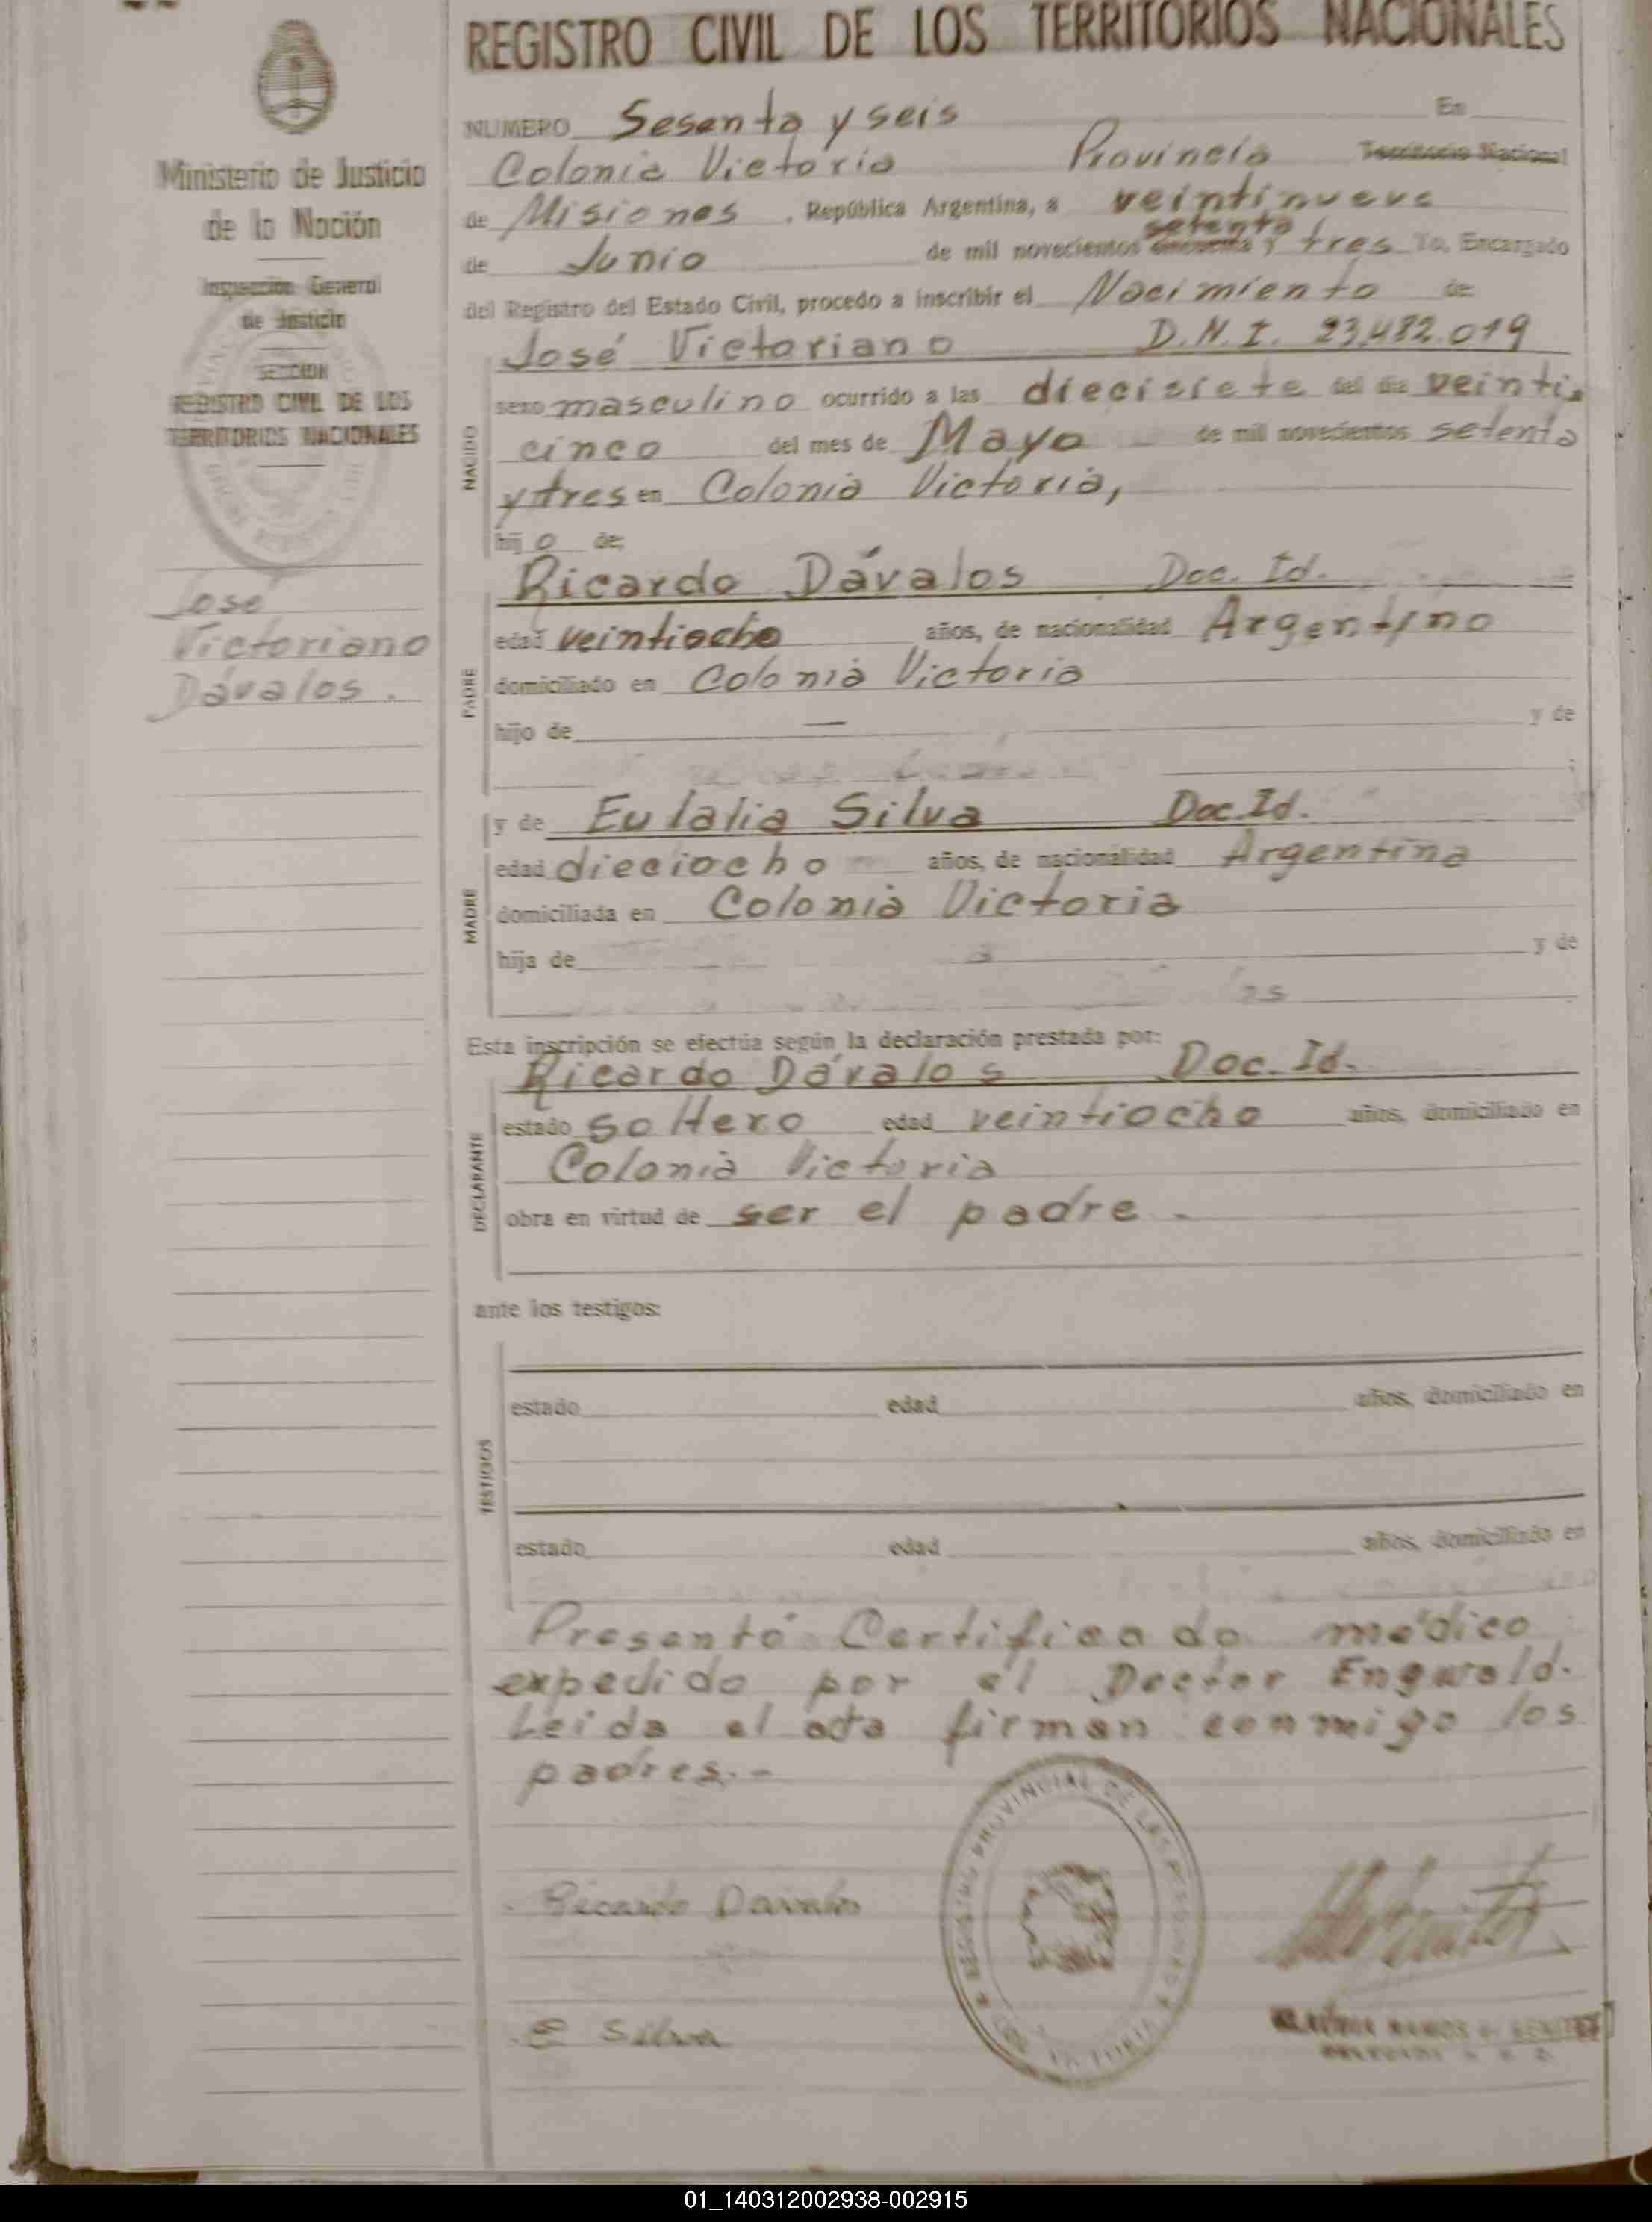 REGISTRO CIVIL DE LOS TERRITORIOS NACIONALES
Ministerio de Justicia
de la Nación
Inspección General
de Justicia
SECCION
REGISTRO CIVIL DE LOS
TERRITORIOS NACIONALES
José
Victoriano
Dávalos.
NUMERO Sesenta y seis En
Colonia Victoria Provincia Territorio Nacional
de Misiones, República Argentina, a veintinueve
setenta
de Junio de mil novecientos cincuenta y tres Yo, Encargado
del Registro del Estado Civil, procedo a inscribir el Nacimiento de:
José Victoriano D.N.I. 23.482.019
sexo masculino ocurrido a las diecisiete del día veinti
cinco del mes de Mayo de mil novecientos setenta
y tres en Colonia Victoria,
hijo de:
NACIDO
Ricardo Dávalos Doc. Id.
edad veintiocho años, de nacionalidad Argentino
domiciliado en Colonia Victoria
hijo de — y de
PADRE
y de Eulalia Silva Doc. Id.
edad dieciocho años, de nacionalidad Argentina
domiciliada en Colonia Victoria
hija de y de
MADRE
Esta inscripción se efectúa según la declaración prestada por:
Ricardo Dávalos Doc. Id.
estado soltero edad veintiocho años, domiciliado en
Colonia Victoria
obra en virtud de ser el padre -
DECLARANTE
ante los testigos:
estado edad años, domiciliado en
estado edad años, domiciliado en
TESTIGOS
Presentó Certificado médico
expedido por el Doctor Engwald.
Leida el acta firman conmigo los
padres.-
Ricardo Davalos
E Silva
REGISTRO PROVINCIAL DE LAS PERSONAS
VICTORIA
RAMOS BENITEZ
01_140312002938-002915